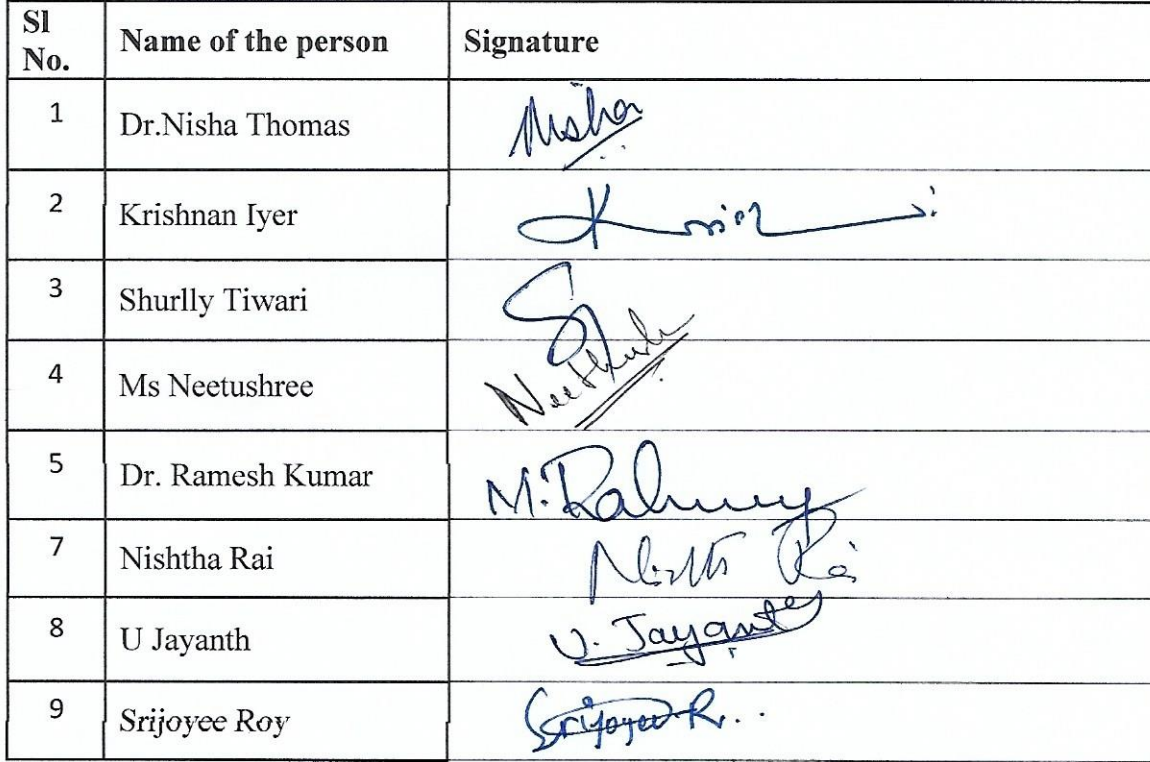 Sl No. Name of the person Signature
1 Dr.Nisha Thomas Nisha
2 Krishnan Iyer
3 Shurlly Tiwari S
4 Ms Neetushree
5 Dr. Ramesh Kumar
7 Nishtha Rai
8 U Jayanth U. Jayanth
9 Srijoyee Roy Srijoyee R.